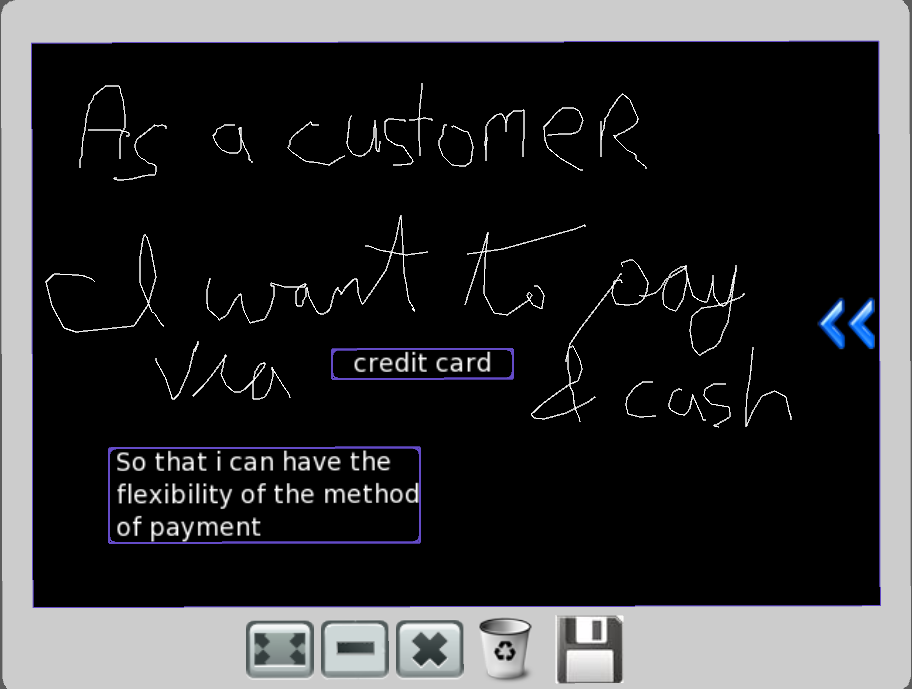 As a customer
I want to pay
via credit card & cash
So that i can have the
flexibility of the method
of payment